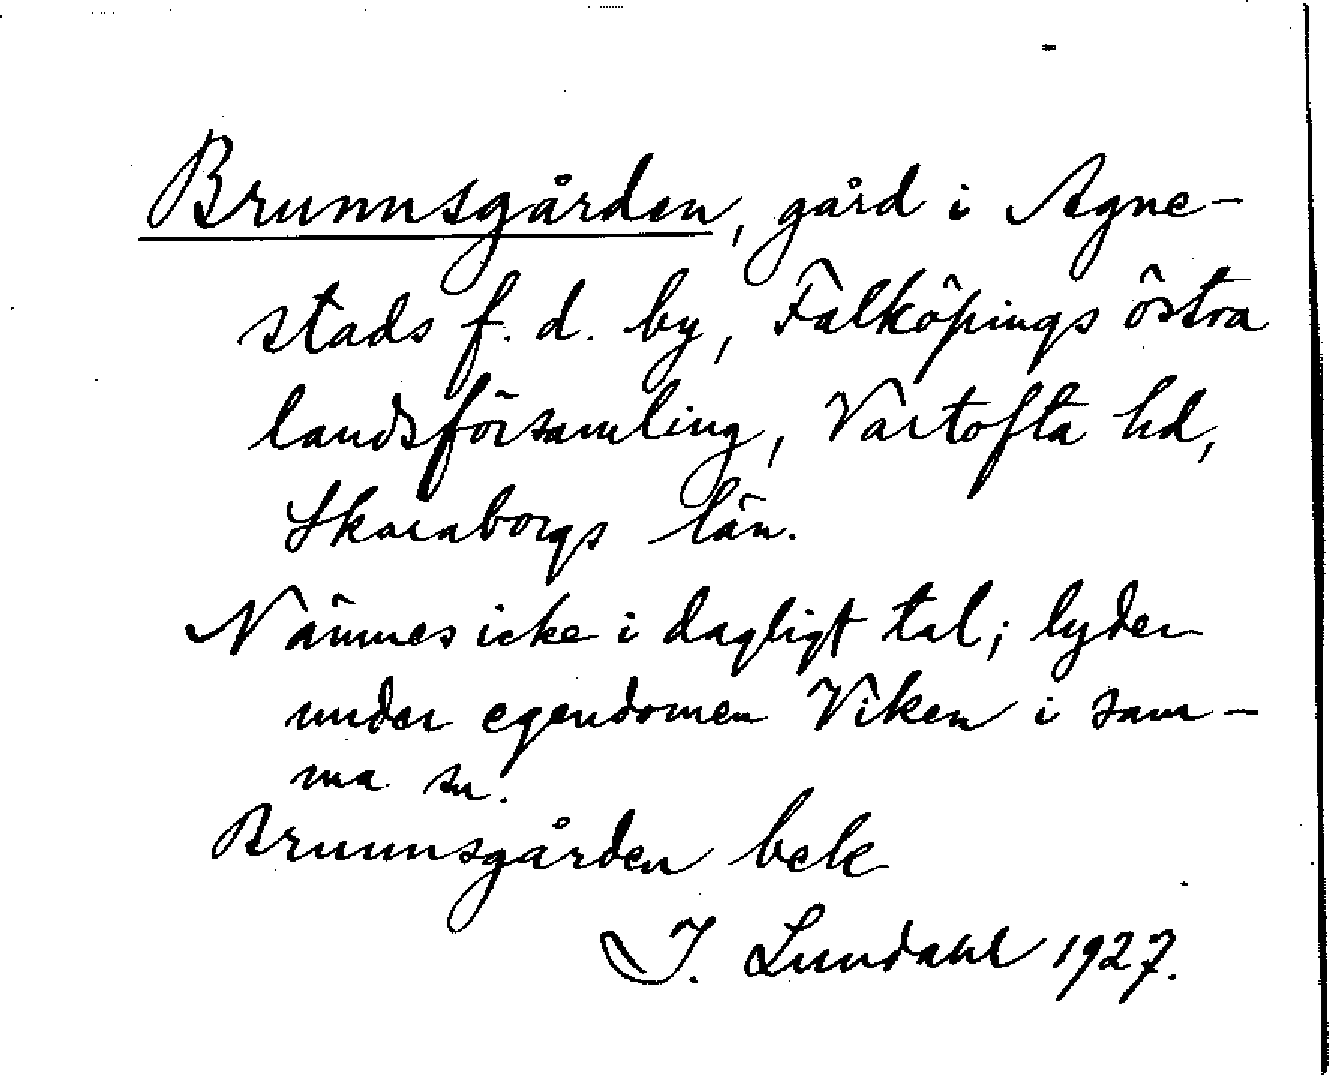 Brunnsgården, gård i Agne-
stads f. d. by, Falköpings östra
landsförsamling, Vartofta hd,
Skaraborgs län.
Nämnes icke i dagligt tal; lyder
under egendomen Viken i sam-
ma sn.
Brunnsgården bek
I. Lundahl 1927.